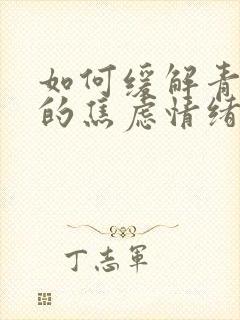 如何缓解青
的焦虑情绪
丁志军